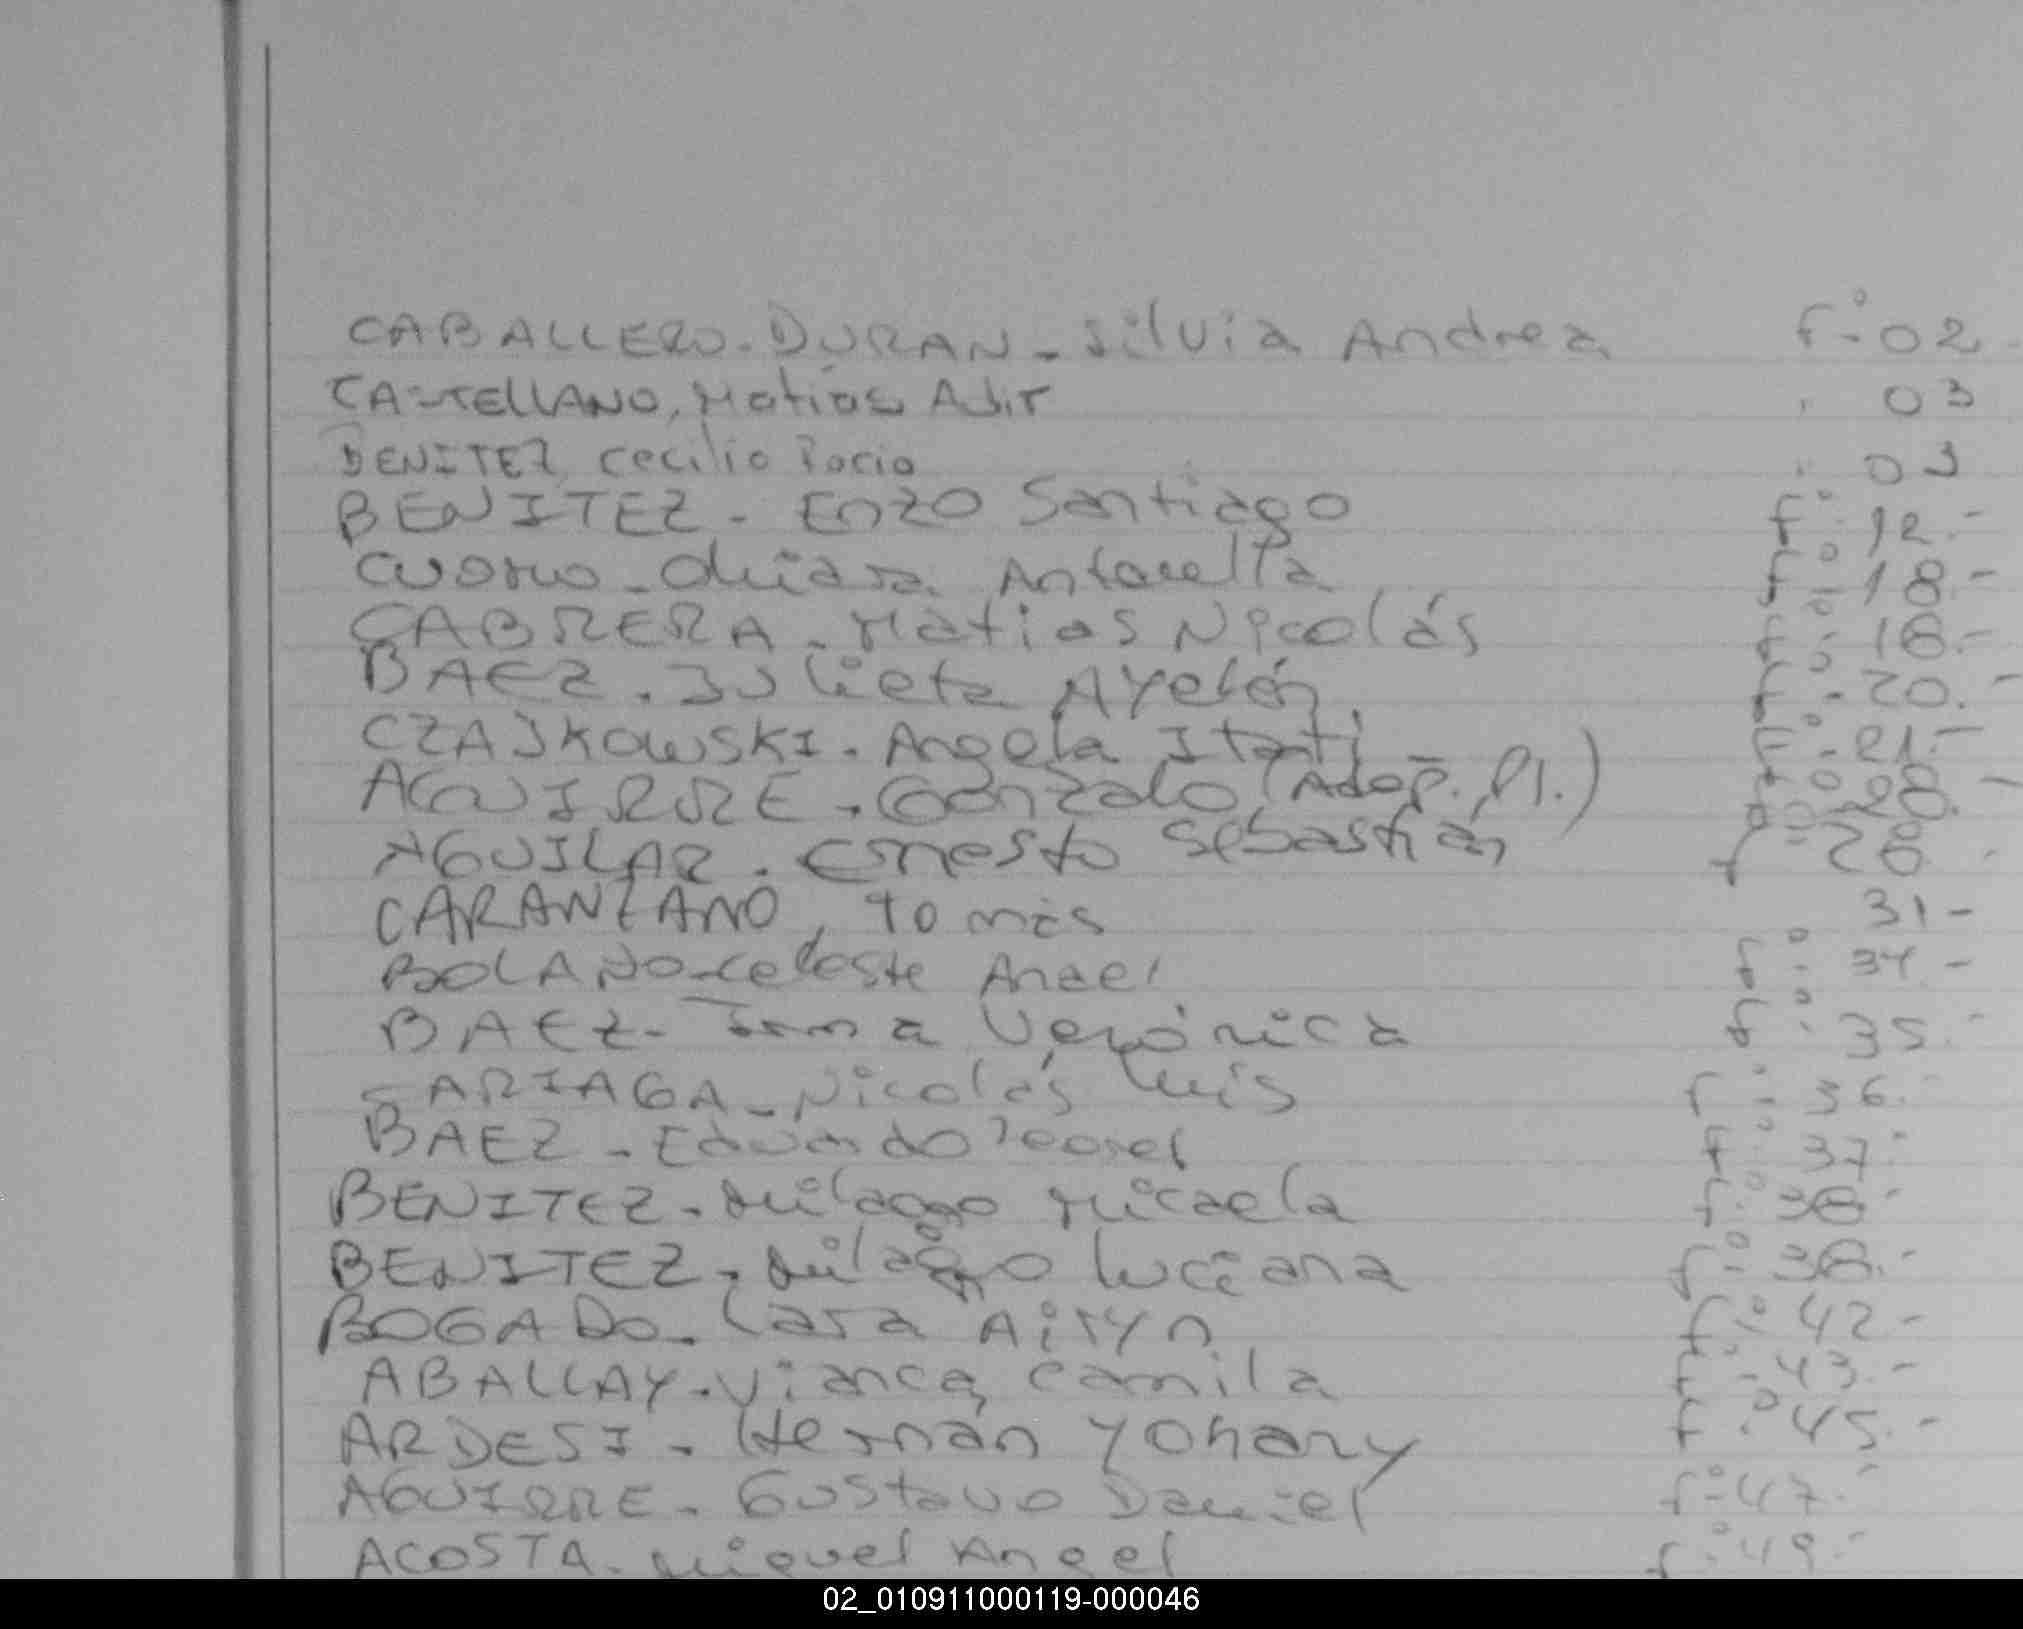 CABALLERO-DURAN - Silvia Andrea f°- 02.
CASTELLANO, Matias Adir " 03
BENITEZ Cecilio Rocio " 03
BENITEZ - Enzo Santiago f°- 12.-
CUOMO - Chiara Antonella f°- 18.-
CABRERA - Matias Nicolás f°- 18.-
BAEZ - Julieta Ayelén f°- 20.-
CZAJKOWSKI - Angela Itatí f°- 21.-
AGUIRRE - Gonzalo (Adop. Pl.) f°- 28.-
AGUILAR - Ernesto Sebastián f°- 28.-
CARANZANO, Tomás 31-
BOLAÑO - Celeste Anael f°- 34.-
BAEZ - Irma Verónica f°- 35.-
ARIAGA - Nicolás Luis f°- 36.-
BAEZ - Eduardo Leonel f°- 37.-
BENITEZ - Milagro Micaela f°- 38.-
BENITEZ - Milagro Luciana f°- 38.-
BOGADO - Lara Airyn f°- 42.-
ABALLAY - Vianca Camila f°- 43.-
ARDESI - Hernán Yohany f°- 45.-
AGUIRRE - Gustavo Daniel f°- 47.-
ACOSTA - Miguel Angel f°- 49.-
02_010911000119-000046